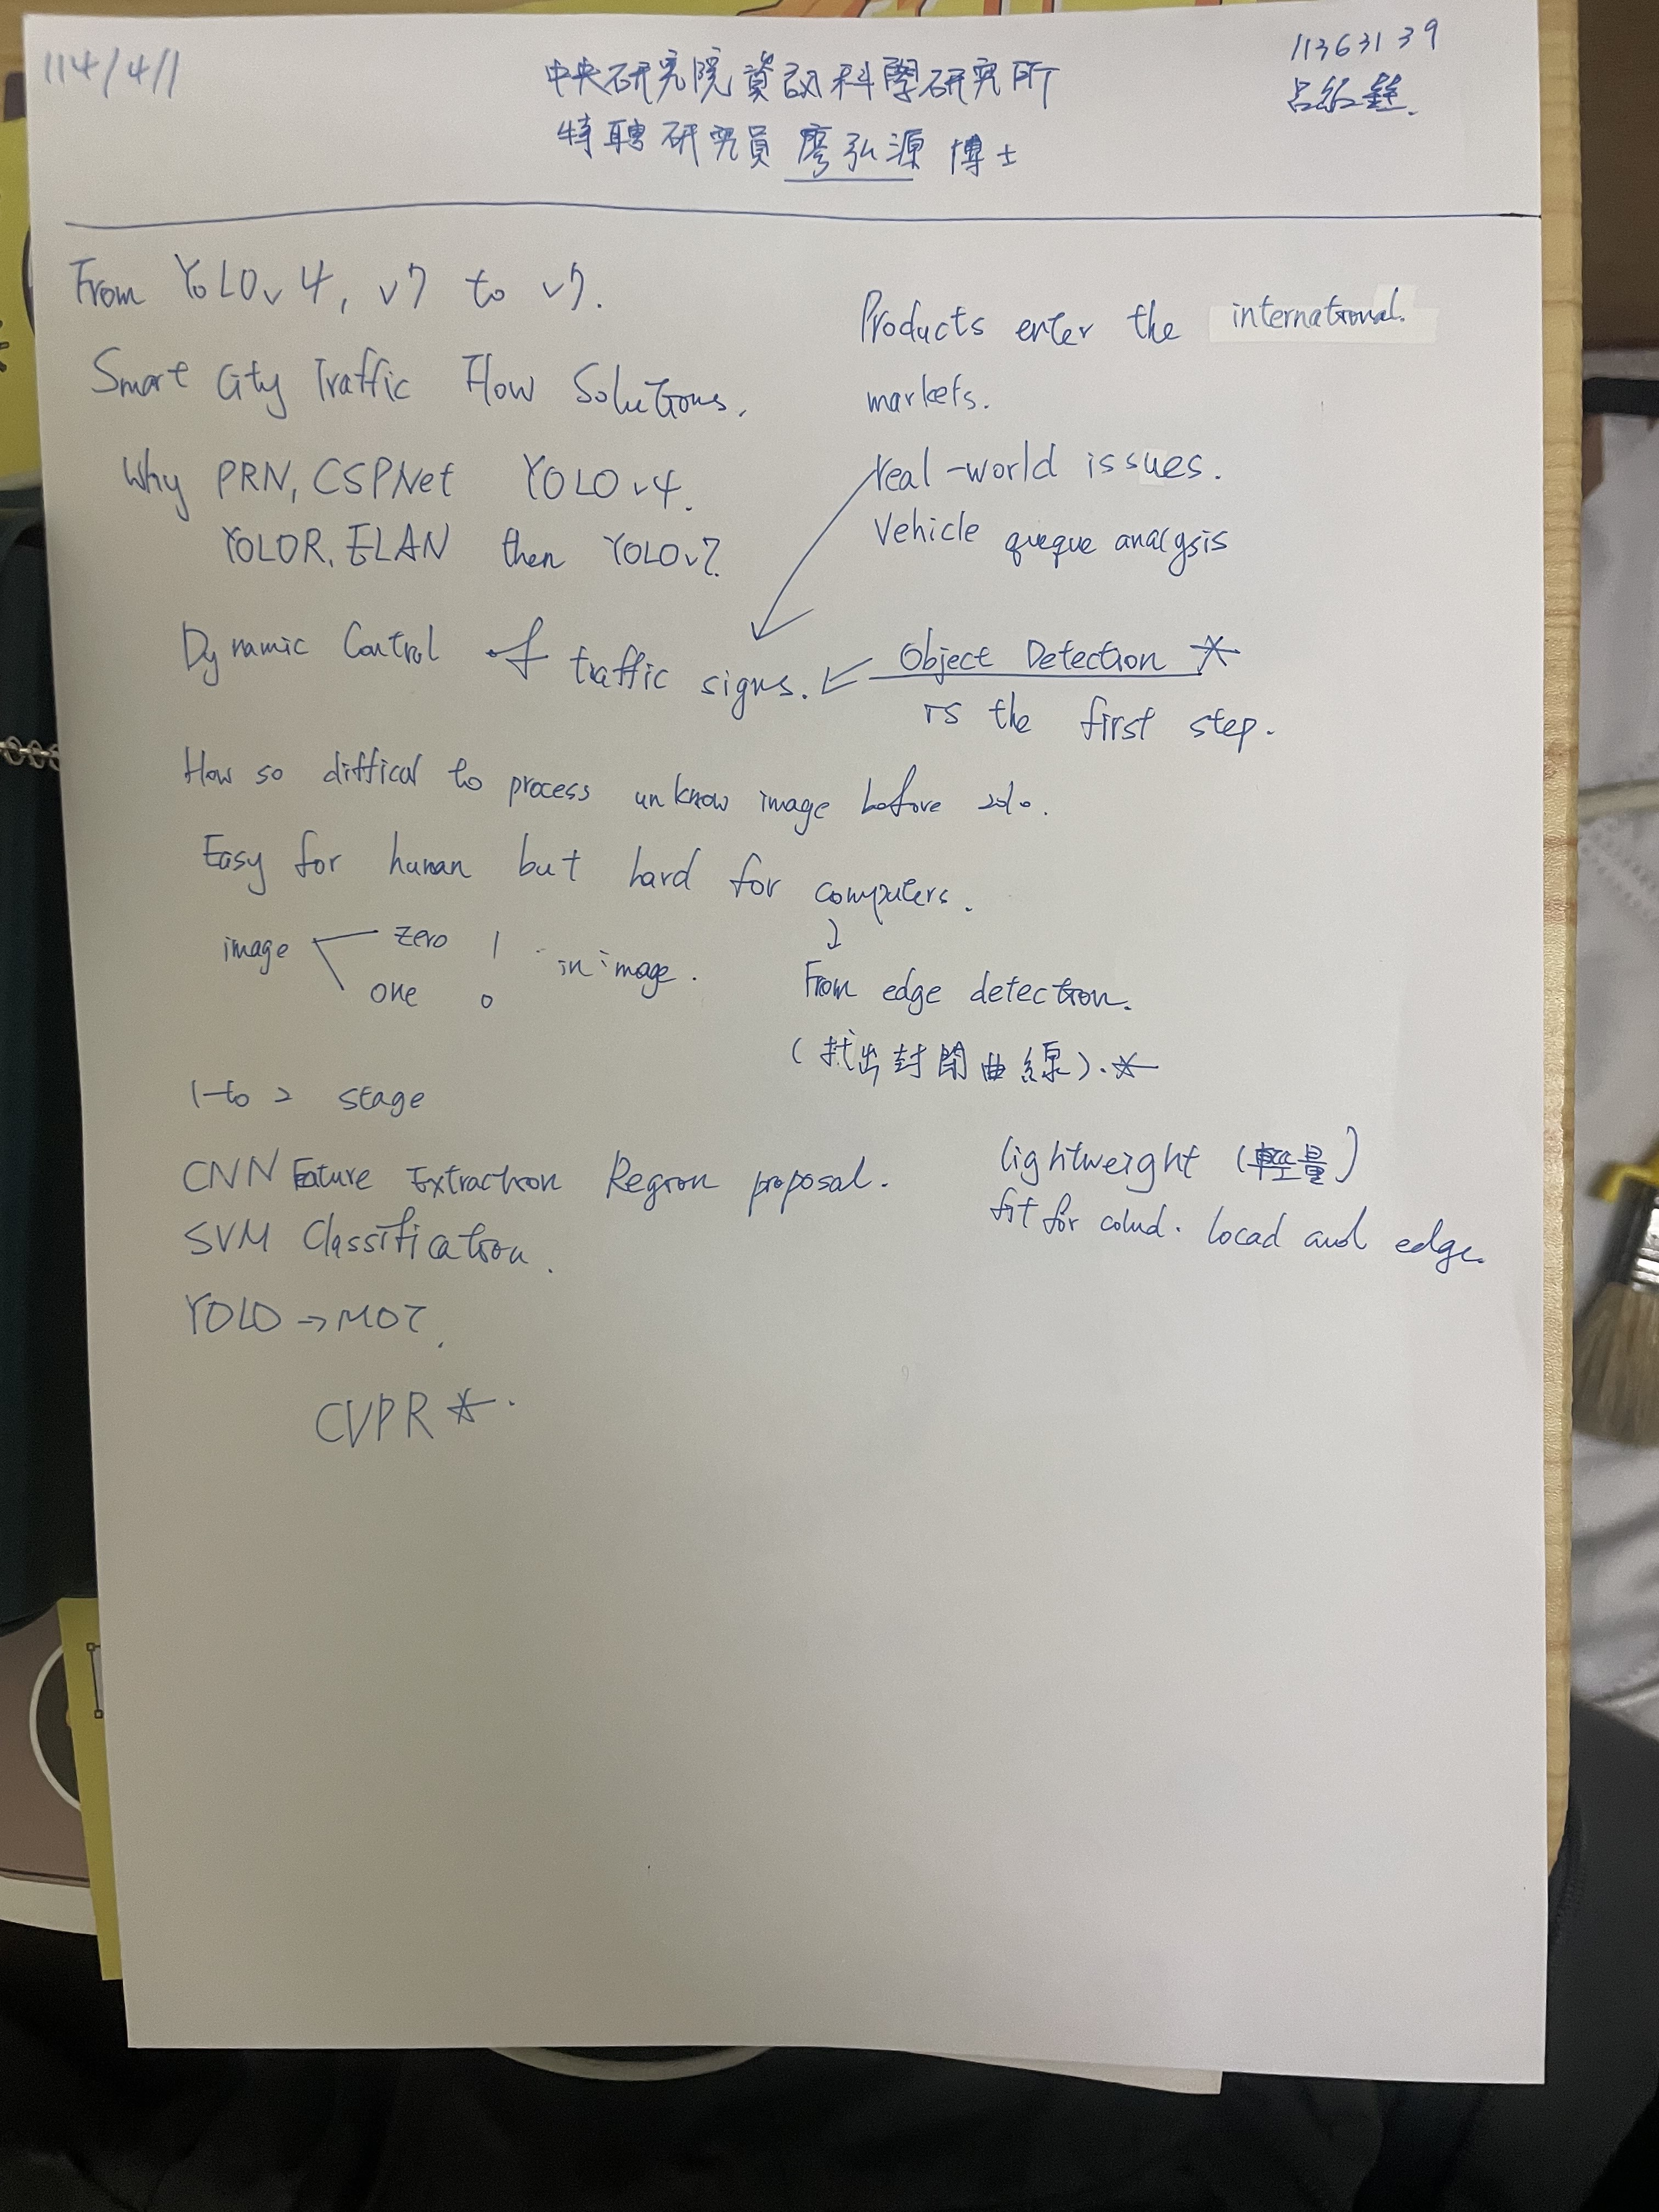 114/4/1
中央研究院資訊科學研究所
特聘研究員 廖弘源 博士
11363139
From YOLOv4, v7 to v7.
Smart City Traffic Flow Solutions.
Why PRN, CSPNet YOLOv4.
YOLOR, ELAN then YOLOv7.
Products enter the international.
markets.
real-world issues.
Vehicle queque analysis
Dynamic Control of traffic signs.
Object Detection
is the first step.
How so diffical to process unknow image before
Easy for human but hard for computers.
image zero 1 in image.
one 0
From edge detection.
(找出封閉曲線).
1 to 2 stage
CNN Feature Extraction Region proposal.
SVM Classification.
YOLO → MOT.
CVPR
lightweight (輕量)
fit for colud. locad and edge.